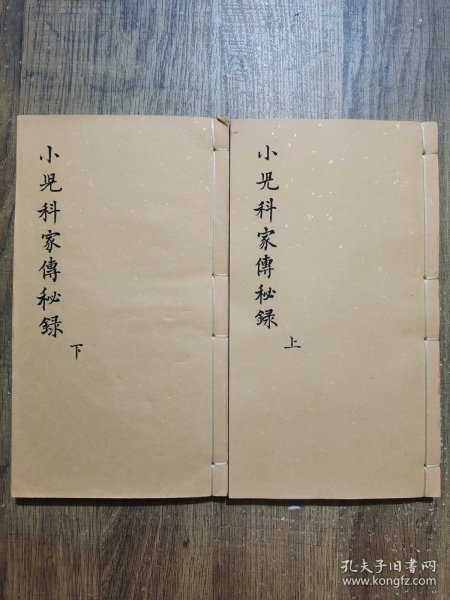 小児科家傳秘録
上
小児科家傳秘録
下
孔夫子旧书网
www.kongfz.com